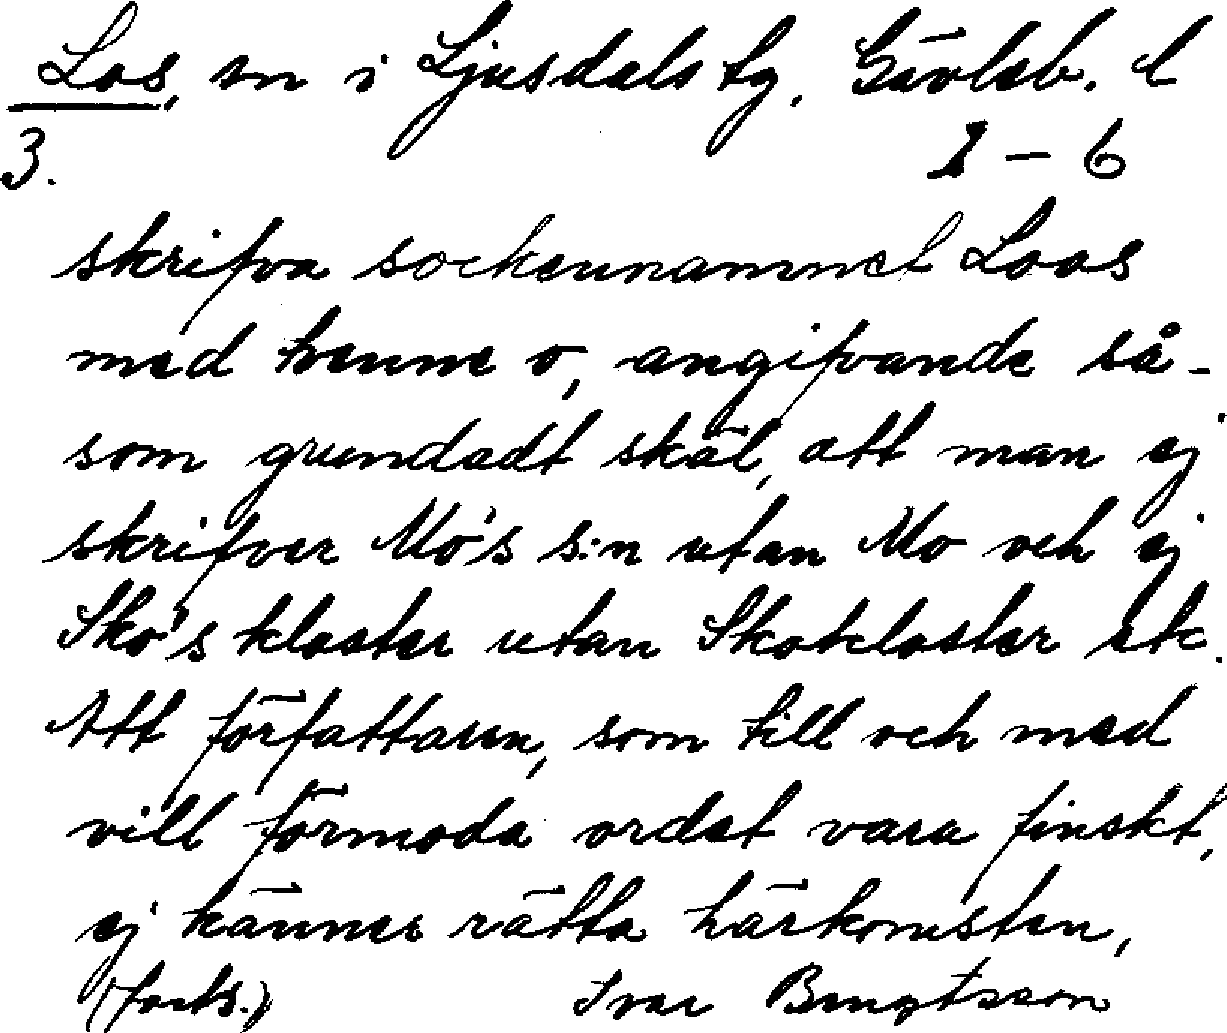 Los, sn i Ljusdals tg, Gävleb. l
3. 1 – 6
skrifva sockennamnet Loos
med tvenne o, angifvande så-
som grundadt skäl, att man ej
skrifver Mo's s:n utan Mo och ej
Sko's kloster utan Skokloster etc.
Att författaren, som till och med
vill förmoda ordet vara finskt,
ej känner rätta härkomsten,
(forts.) Ivar Bengtsson